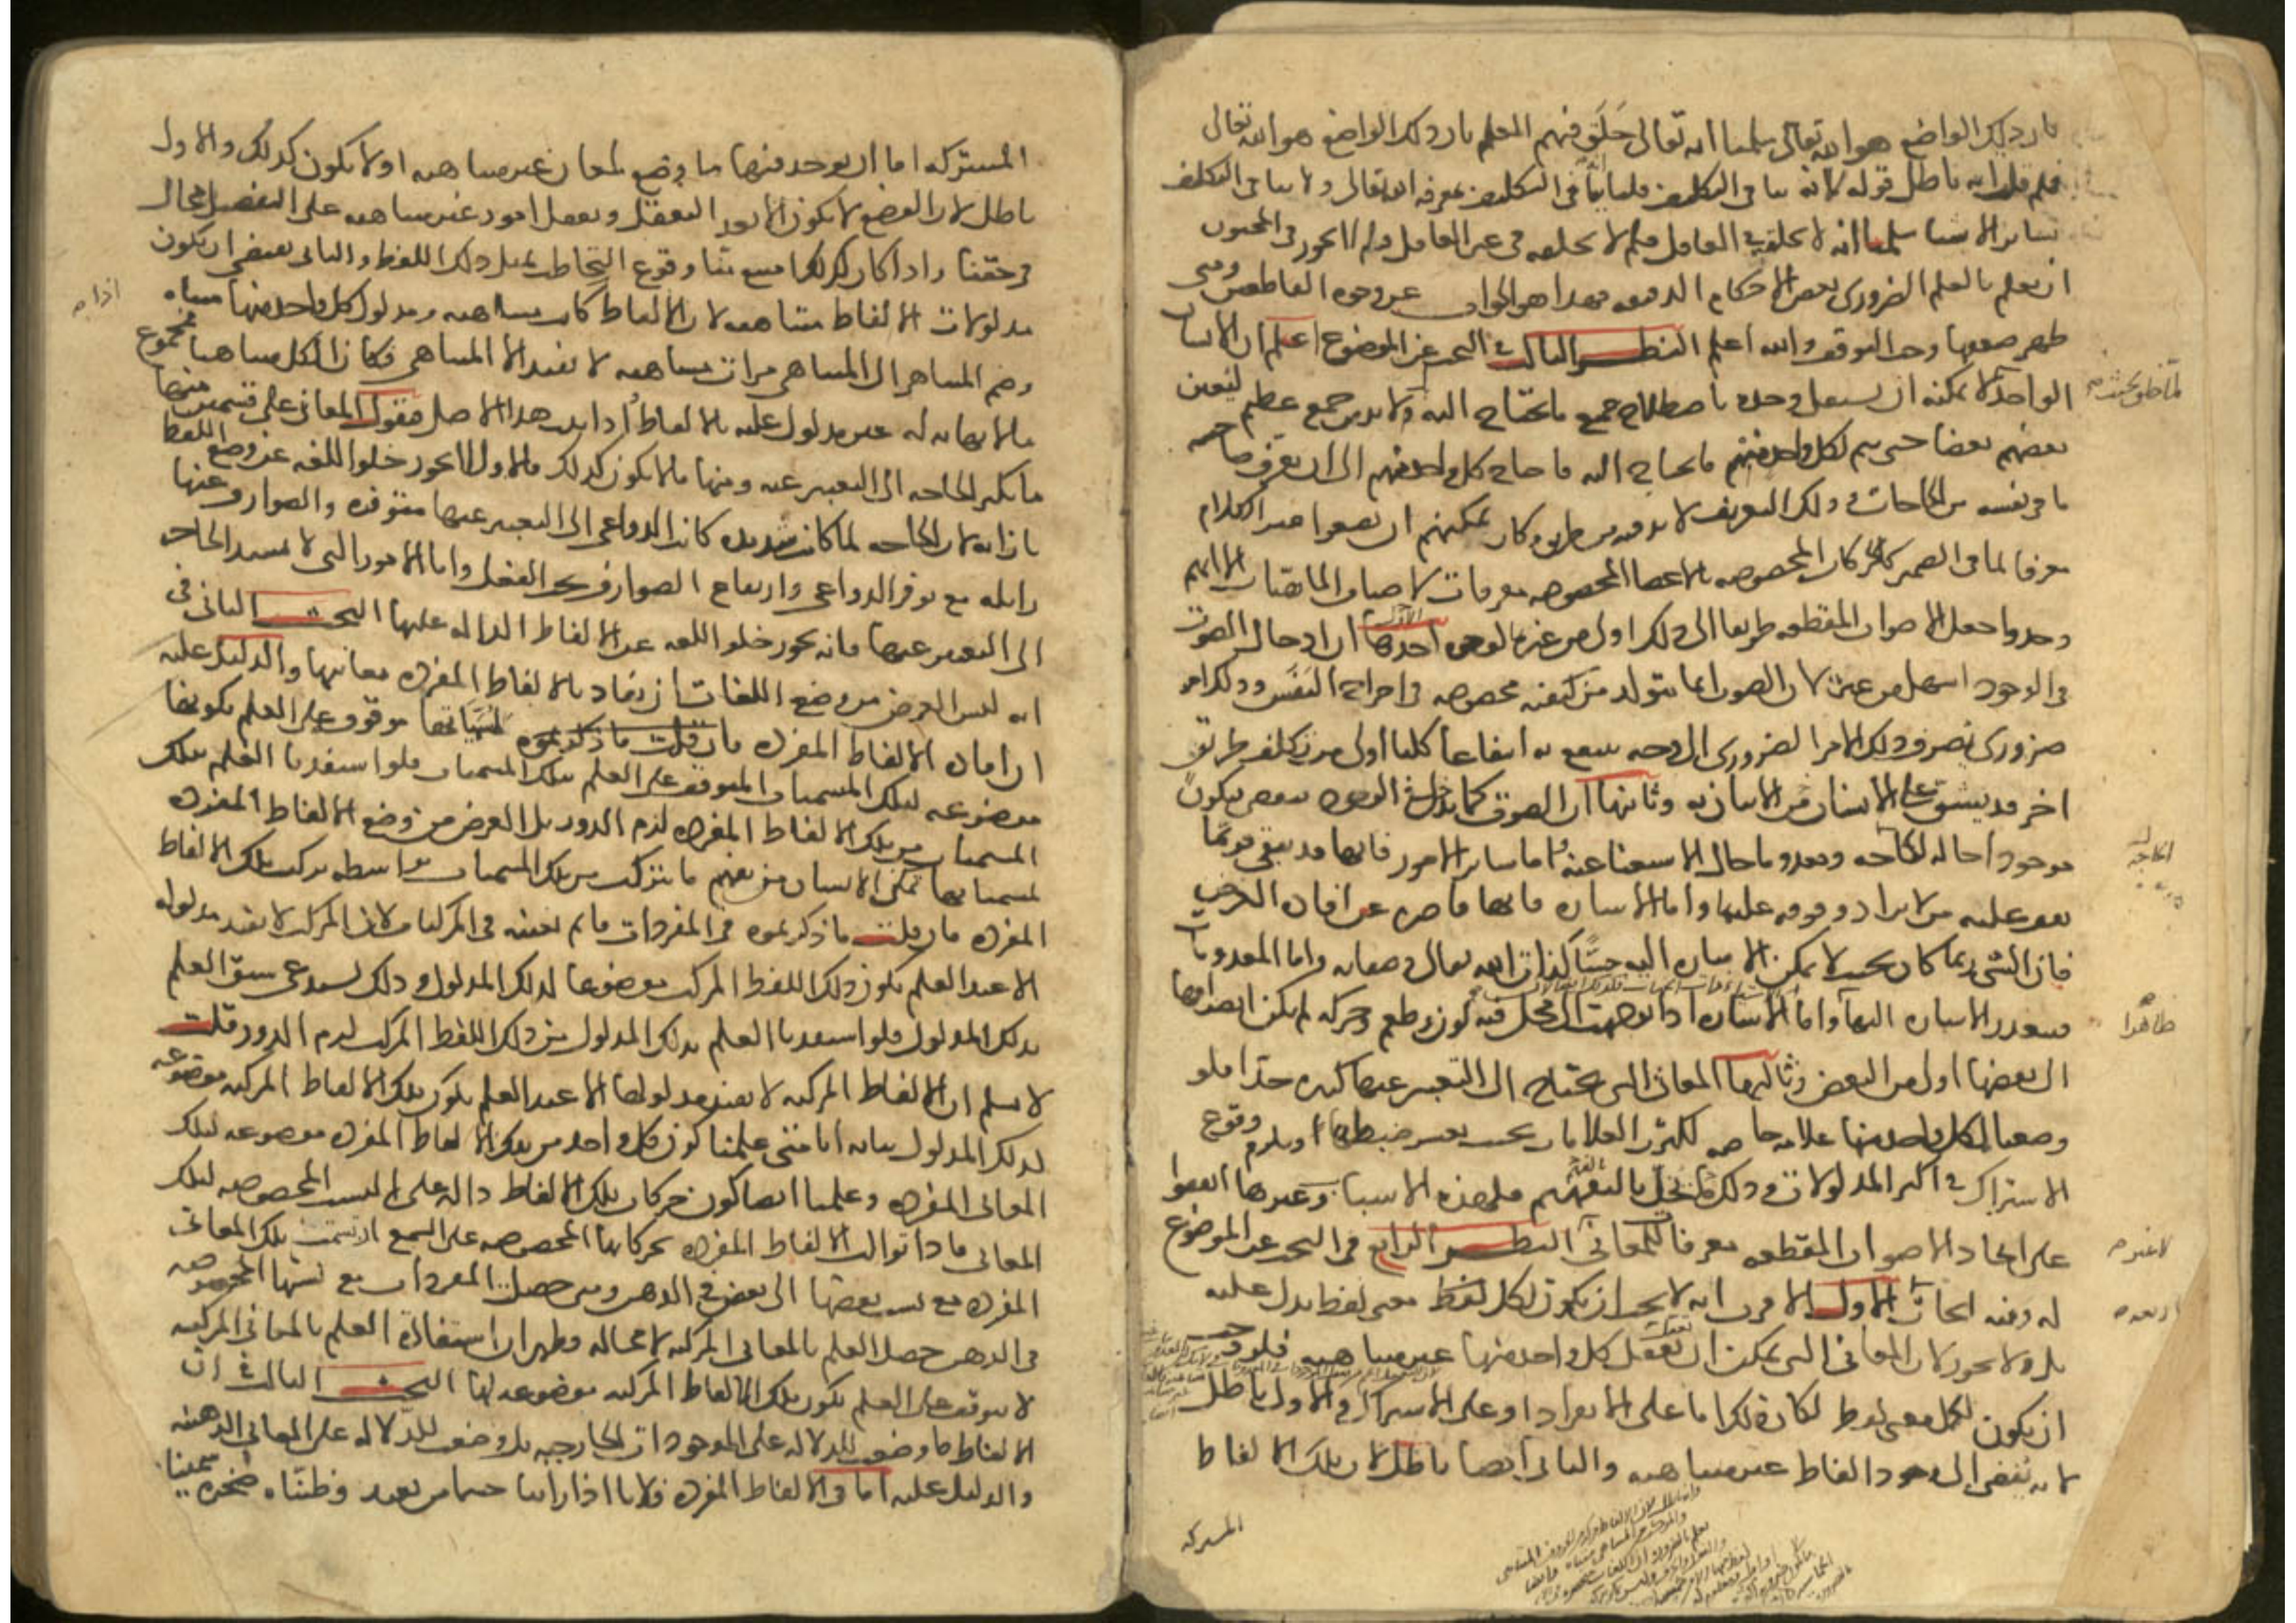 بان ذلك الواضع هو الله تعالى سلمنا انه تعالى خلق فيهم العلم بان ذلك الواضع هو الله تعالى
فلم قلت انه باطل قوله لانه ينافي التكليف قلنا انما ينافي التكليف بمعرفة الله تعالى ولا ينافي التكليف
بسائر الاشيا سلمنا انه لا يخلقه في العاقل فلم لا يخلقه في غير العاقل ولم لا يجوز في المجنون
ان يعلم بالعلم الضروري بعض الاحكام الدقيقه فهذا هو الجواب عن وجوه القاطعين ومتى
ظهر ضعفها وجب التوقف والله اعلم النظر الثالث في البحث عن الموضوع اعلم ان الانسان
الواحد لا يمكنه ان يستقل وحده باصطلاح جميع ما يحتاج اليه ولا بد من جمع عظيم ليعين
بعضهم بعضا حتى يتم لكل واحد منهم ما يحتاج اليه فاحتاج كل واحد منهم الى ان يعرف صاحبه
ما في نفسه من الحاجات وذلك التعريف لا بد فيه من طريق وكان يمكنهم ان يضعوا غير الكلام
معرفا لما في الضمير كالحركات المخصوصه بالاعضا المخصوصه معرفات لاصناف الماهيات الا انهم
وجدوا جعل الاصوات المقطعه طريقا الى ذلك اولى من غيرها لوجوه احدها ان ادخال الصوت
في الوجود اسهل من غيره لان الصوت انما يتولد من كيفيه مخصوصه في اخراج النفس وذلك امر
ضروري فصرف ذلك الامر الضروري الى وجه ينتفع به انتفاعا كليا اولى من تكلف طريق
اخر قد يشق على الانسان الاتيان به وثانيها ان الصوت كما يدخل في الوجود ينقضي فيكون
موجودا حاله الحاجه ومعدوما حال الاستغنا عنه واما سائر الامور فانها قد تبقى وربما
يقف عليه من لا يراد وقوفه عليها واما الاشاره فانها قاصره عن افاده الغرض
فان الشي ربما كان بحيث لا يمكن الاشاره اليه حسا كذات الله تعالى وصفاته واما المعدومات
فيتعذر الاشاره اليها واما الاشاره اذا توجهت الى محل فيه لون وطعم وحركه لم يكن انصرافها
الى بعضها اولى من البعض وثالثها المعاني التي يحتاج الى التعبير عنها كثيره جدا فلو
وضعنا لكل واحد منها علامه خاصه لكثرت العلامات بحيث يعسر ضبطها او يلزم وقوع
الاشتراك في اكثر المدلولات وذلك مما يخل بالتفهيم فلهذه الاسباب وغيرها اتفقوا
على اتخاذ الاصوات المقطعه معرفا للمعاني النظر الرابع في البحث عن الموضوع
له وفيه ابحاث الاول الاقرب انه لا يجب ان يكون لكل لفظ معنى لفظ يدل عليه
بل ولا يجوز لان المعاني التي يمكن ان تعقل كل واحد منها غير متناهيه فلو وجب
ان يكون لكل معنى لفظ لكان ذلك اما على الانفراد او على الاشتراك والاول باطل
لانه يفضي الى وجود الفاظ غير متناهيه والثاني ايضا باطل لان تلك الالفاظ
المشتركه
المشتركه اما ان يوجد فيها ما وضع لمعان غير متناهيه او لا يكون كذلك والاول
باطل لان الوضع لا يكون الا بعد التعقل وتعقل امور غير متناهيه على التفصيل محال
في حقنا واذا كان كذلك امتنع منا وقوع التخاطب بمثل ذلك اللفظ والثاني يقتضي ان يكون
مدلولات الالفاظ متناهيه لان الالفاظ كانت متناهيه ومدلول كل واحد منها متناه
وضم المتناهي الى المتناهي مرات متناهيه لا يفيد الا المتناهي فكان الكل متناهيا فمجموع
ما لا نهايه له غير مدلول عليه بالالفاظ اذا ثبت هذا الاصل فنقول المعاني على قسمين منها
ما تكثر الحاجه الى التعبير عنه ومنها ما لا يكون كذلك فالاول لا يجوز خلو اللغه عن وضع اللفظ
بازائه لان الحاجه لما كانت شديده كانت الدواعي الى التعبير عنها متوفره والصوارف عنها
زايله مع توفر الدواعي وارتفاع الصوارف يجب الفعل واما الامور التي لا تشتد الحاجه
الى التعبير عنها فانه يجوز خلو اللغه عن الالفاظ الداله عليها البحث الثاني في
انه ليس الغرض من وضع اللغات ان تفاد بالالفاظ المفرده معانيها والدليل عليه
ان افاده الالفاظ المفرده لمسمياتها موقوفه على العلم بكونها
موضوعه لتلك المسميات المتوقف على العلم بتلك المسميات فلو استفدنا العلم بتلك
المسميات من تلك الالفاظ المفرده لزم الدور بل الغرض من وضع الالفاظ المفرده
لمسمياتها تمكن الانسان من تفهم ما يتركب من تلك المسميات بواسطه تركيب تلك الالفاظ
المفرده فان قلت ما ذكرتموه في المفردات قائم بعينه في المركبات لان المركب لا يفيد مدلوله
الا عند العلم بكون ذلك اللفظ المركب موضوعا لذلك المدلول وذلك يستدعي سبق العلم
بذلك المدلول فلو استفدنا العلم بذلك المدلول من ذلك اللفظ المركب لزم الدور قلت
لا نسلم ان الالفاظ المركبه لا تفيد مدلولها الا عند العلم بكون تلك الالفاظ المركبه موضوعه
لذلك المدلول بيانه انا متى علمنا كون كل واحد من تلك الالفاظ المفرده موضوعه لتلك
المعاني المفرده وعلمنا ايضا كون حركات تلك الالفاظ داله على النسب المخصوصه لتلك
المعاني فاذا توالت الالفاظ المفرده بحركاتها المخصوصه على السمع ارتسمت تلك المعاني
المفرده مع نسب بعضها الى بعض في الذهن ومتى حصلت المفردات مع نسبها المخصوصه
في الذهن حصل العلم بالمعاني المركبه لا محاله فظهر ان استفاده العلم بالمعاني المركبه
لا يتوقف على العلم بكون تلك الالفاظ المركبه موضوعه لها البحث الثالث في ان
الالفاظ ما وضعت للدلاله على الموجودات الخارجيه بل وضعت للدلاله على المعاني الذهنيه
والدليل عليه اما في الالفاظ المفرده فلانا اذا راينا جسما من بعيد وظنناه صخره سميناه